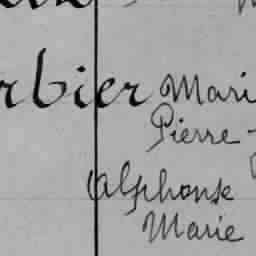 rbier Mari
Pierre-
Alphonse
Marie